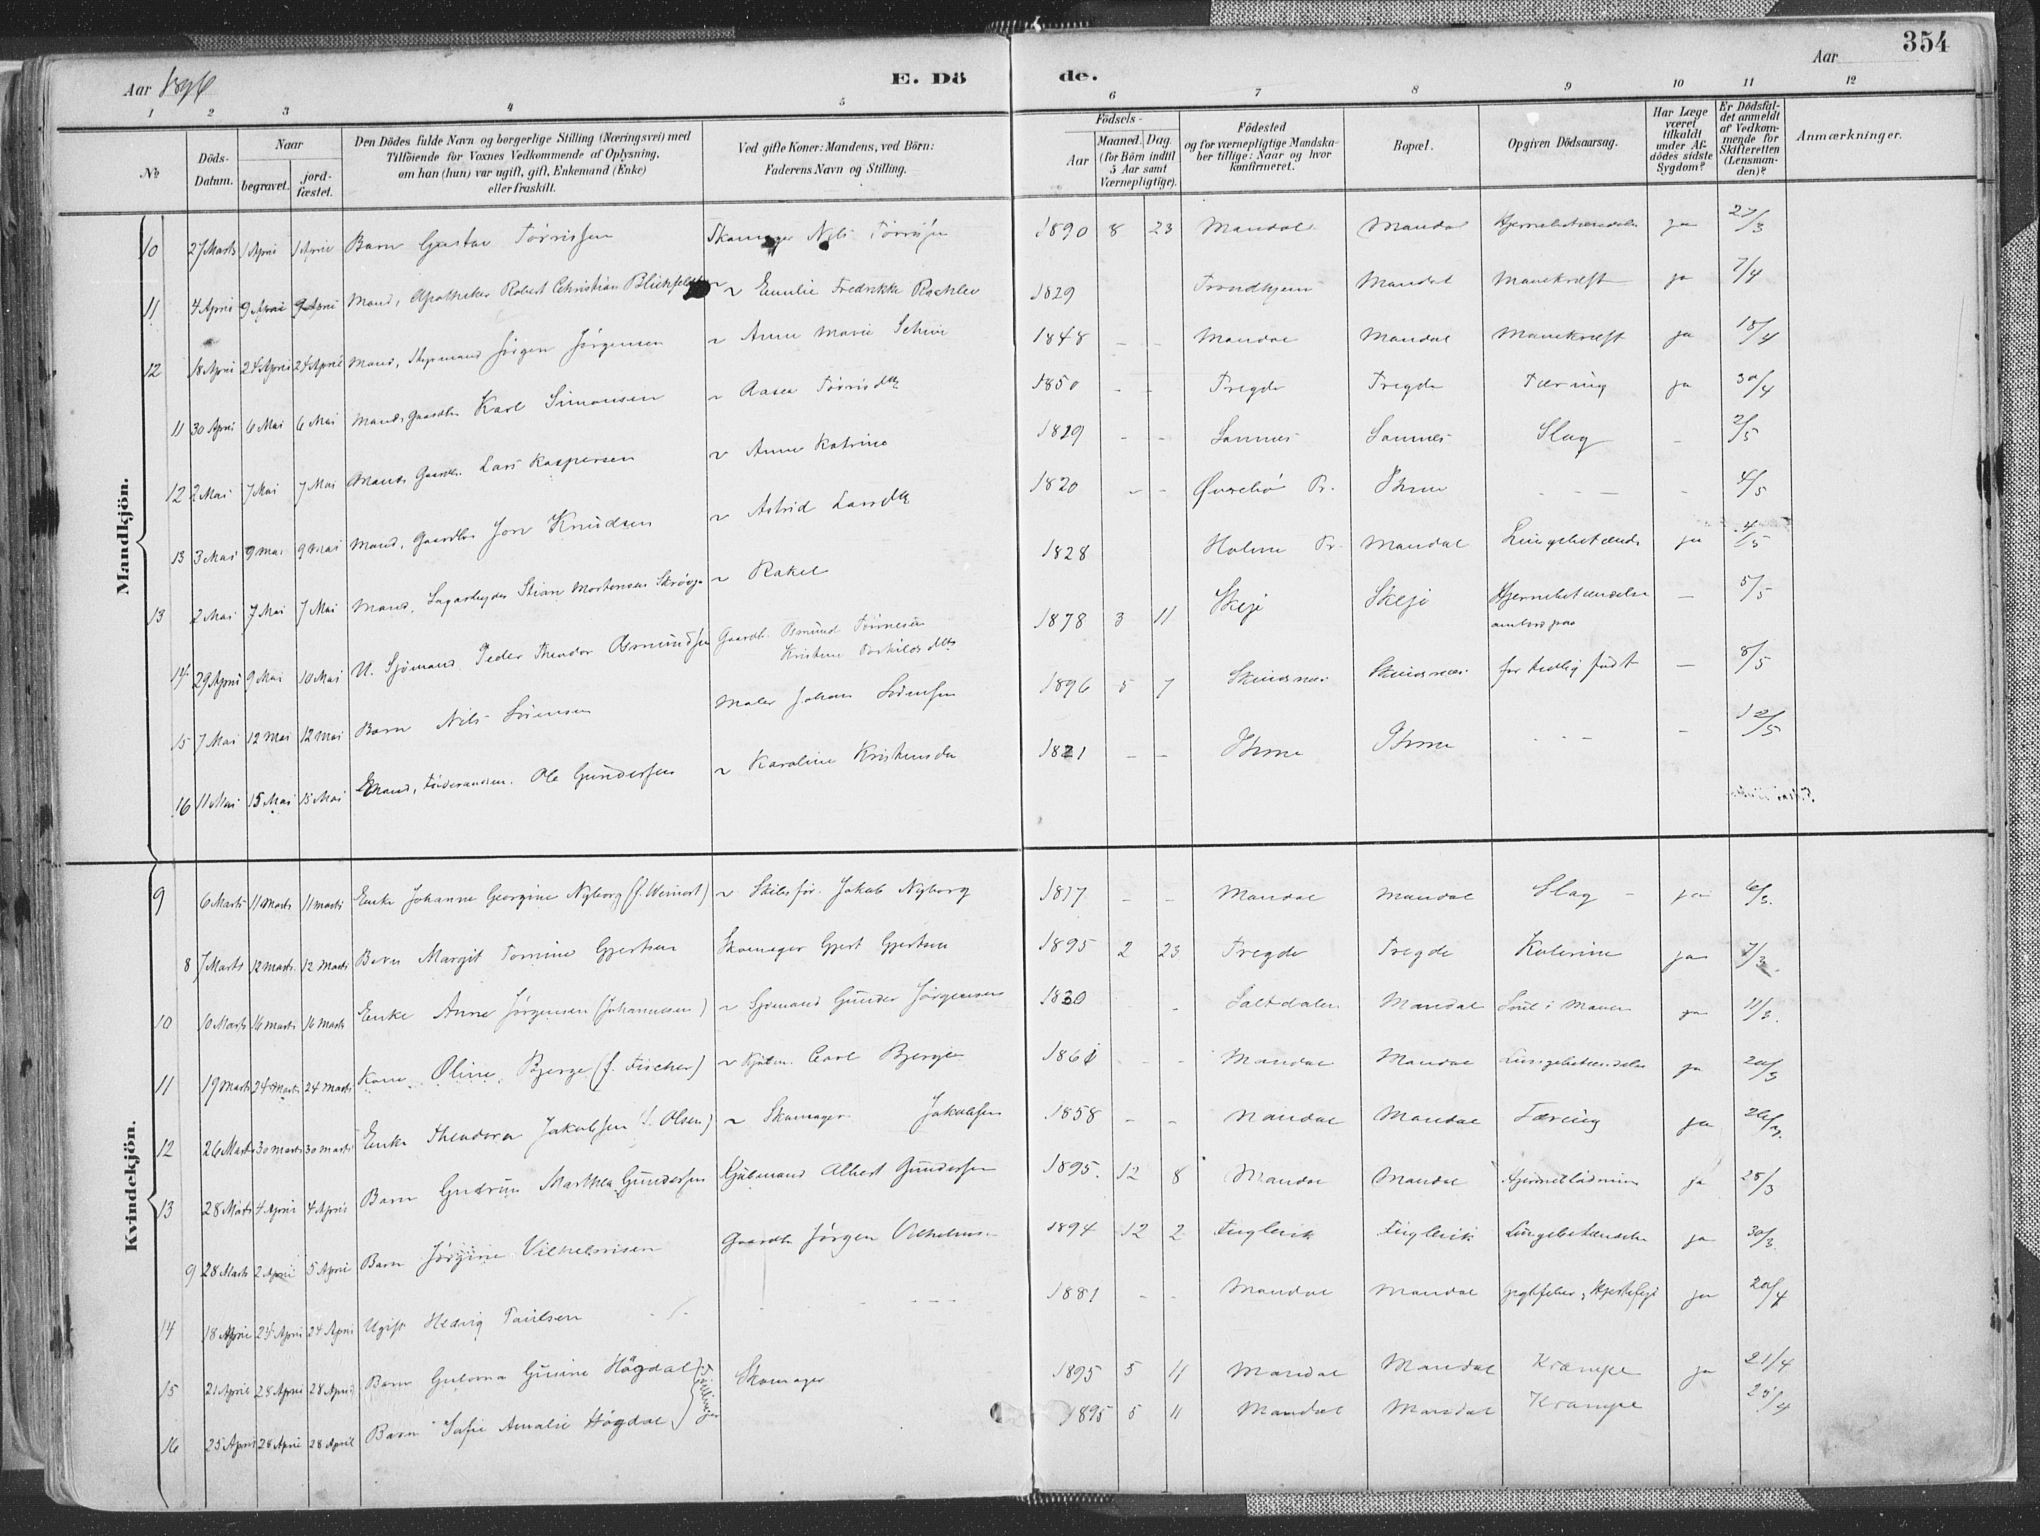 354
Aar 1896 E. Dö de. Aar
1 2 3 4 5 6 7 8 9 10 11 12
№
Döds-Datum.
Naar
begravet.
jord-fæstet.
Den Dödes fulde Navn og borgerlige Stilling (Næringsvei) med
Tilföiende for Voxnes Vedkommende af Oplysning,
om han (hun) var ugift, gift, Enkemand (Enke)
eller fraskilt.
Ved gifte Koner: Mandens, ved Börn:
Faderens Navn og Stilling.
Födsels-
Aar
Maaned. Dag.
(for Börn indtil
5 Aar samt
Værnepligtige).
Födested
og for værnepligtige Mandska-
ber tillige: Naar og hvor
konfirmeret.
Bopæl.
Opgiven Dödsaarsag.
Har Læge
været
tilkaldt
under Af-
dödes sidste
Sygdom?
Er Dödsfal-
det anmeldt
af Vedkom-
mende for
Skifteretten
(Lensman-
den)?
Anmærkninger.
Mandkjön.
10 27 Marts 1 April 1 April Barn Gustav Törrissen Skomager Nils Törrisen 1890 8 23 Mandal Mandal Hjernebetændelse ja 27/3
11 4 April 9 April 9 April Mand, Apotheker Robert Christian Blickfeldt ~ Emilie Fredrikke 1829 Trondhjem Mandal Mavekræft ja 7/4
12 18 April 24 April 24 April Mand, Jörgen Jörgensen ~ Anne Marie 1848 – – Mandal Mandal Mavekræft ja 18/4
11 30 April 6 Mai 6 Mai Mand, Gaardbr. Karl Simonsen ~ Aasea Törrisdtr 1850 – – Tregde Tregde Tæring ja 30/4
12 2 Mai 7 Mai 7 Mai Mand, Gaardbr. Lars Kaspersen ~ Anne Katrine 1829 – – Sannes Sannes Slag – 2/5
13 3 Mai 9 Mai 9 Mai Mand, Gaardbr. Jon Knudsen ~ Astrid Larsdtr 1820 – – Øvrebø Pr. Ihme – – – 4/5
13 2 Mai 7 Mai 7 Mai Mand, Sagarbeyder Stian Mortensen ~ Rakel 1828 Holme Pr. Mandal Lungebetænd. ja 4/5
14 29 April 9 Mai 10 Mai U. Sjömand Peder Theodor Osmundsen Gaardb. Osmund Tönnesen
Kristine Torkildsdtr 1878 3 11 Skeje Skeje Hjernebetændelse
ombord paa – 5/5
15 7 Mai 12 Mai 12 Mai Barn Nils Sörensen Maler Johan Sörensen 1896 5 7 Skinsnes Skinsnes for tidlig födt – 8/5
16 11 Mai 15 Mai 15 Mai Emand, Föderaadsm. Ole Gundersen ~ Karoline Kristensdtr 1821 – – Ihme Ihme – – – – 12/5
Kvindekjön.
9 6 Marts 11 Marts 11 Marts Enke Johanne Georgine Nyborg (f. Weinert) ~ Skibsför. Jakob Nyborg 1817 – – Mandal Mandal Slag – ja 6/3.
8 7 Marts 12 Marts 12 Marts Barn Margit Tomine Gjertsen Skomager Gjert Gjertsen 1895 2 23 Tregde Tregde Kolerine ja 7/3
10 10 Marts 16 Marts 16 Marts Enke Anne Jörgensen (Johannesen) ~ Sjömand Gunder Jörgensen 1830 – – Saltdalen Mandal Saar i Maven ja 11/3.
11 19 Marts 24 Marts 24 Marts Kone Oline Bjerge (f. Fischer) ~ Kjöbm. Carl Bjerge 1861 – – Mandal Mandal Lungebetændelse ja 20/3
12 26 Marts 30 Marts 30 Marts Enke Theodora Jakobsen (f. Olsen) ~ Skomager Jakobsen 1858 – – Mandal Mandal Tæring ja 26/3.
13 28 Marts 4 April 4 April Barn Gudrun Marthea Gundersen Kjöbmand Albert Gundersen 1895. 12 8 Mandal Mandal ja 28/3
9 28 Marts 2 April 5 April Barn Jörgine Vilhelmsen Gaardbr Jörgen Vilhelms. 1894 12 2 Fuglevik Fuglevik Lungebetændelse ja 30/3.
14 18 April 24 April 24 April Ugift Hedvig Poulsen – – – 1881 – – Mandal Mandal Gigtfeber, Hjertefejl ja 20/4
15 21 April 28 April 28 April Barn Gusine Högdal } Tvillinger Skomager 1895 5 11 Mandal Mandal Krampe ja 21/4
16 25 April 28 April 28 April Barn Sofie Amalie Högdal 1895 5 11 Mandal Mandal Krampe 25/4